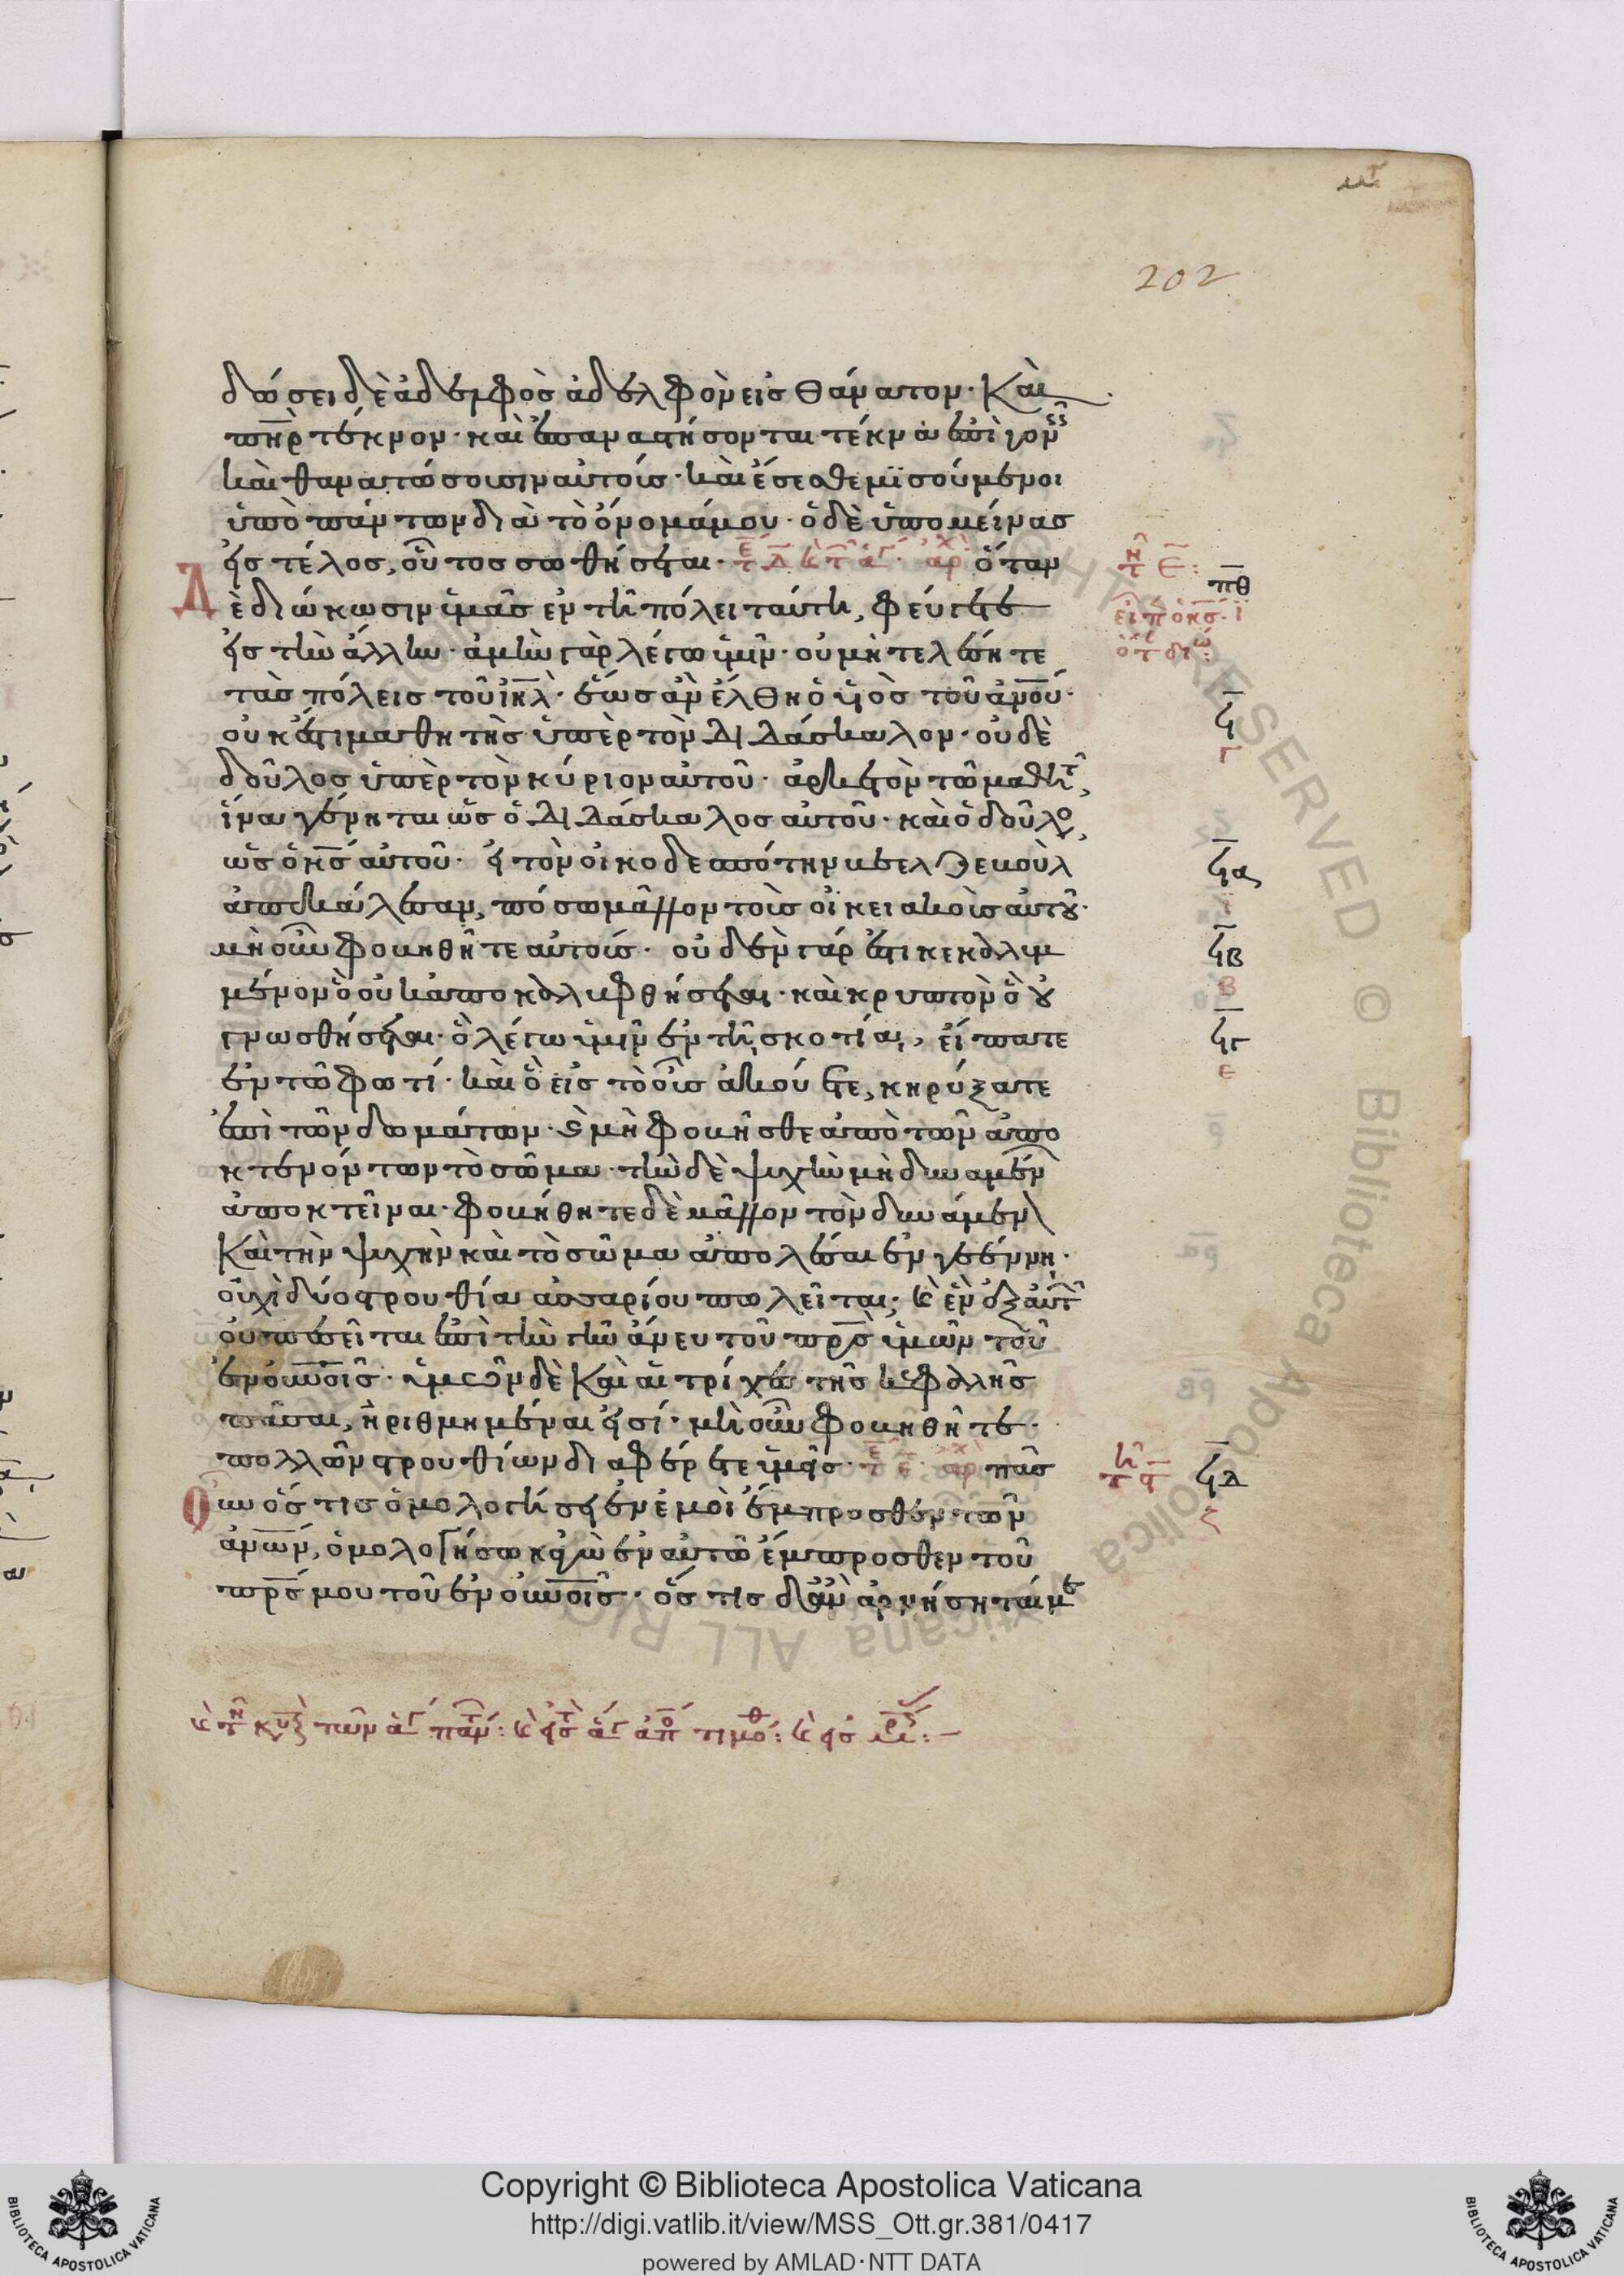 202
δώσει δὲ ἀδελφὸς ἀδελφὸν εἰς θάνατον· Καὶ
πηρ τέκνον· καὶ ἐπαναστήσονται τέκνα ἐπὶ γονεῖς
καὶ θανατώσουσιν αὐτούς· καὶ ἔσεσθε μϊσούμενοι
ὑπὸ πάντων διὰ τὸ ὄνομά μου· ὁ δὲ ὑπομείνας
εἰς τέλος, οὗτος σωθήσεται· ὅταν
Δὲ διώκωσιν ὑμᾶς ἐν τῆ πόλει ταύτη, φεύγετε
εἰς τὴν ἄλλην· ἀμὴν γὰρ λέγω ὑμῖν· οὐ μὴ τελέσητε
τὰς πόλεις τοῦ ιηλ· ἕως ἂν ἔλθη ὁ υἱὸς τοῦ ανου·
οὐκ ἔστι μαθητὴς ὑπὲρ τὸν διδάσκαλον· οὐδὲ
δοῦλος ὑπὲρ τὸν κύριον αὐτοῦ· ἀρκετὸν τῶ μαθητ
ἵνα γένηται ὡς ὁ διδάσκαλος αὐτοῦ· καὶ ὁ δοῦλο
ὡς ὁ κς αὐτοῦ· εἰ τὸν οἰκοδεσπότην βεελζεβοὺλ
ἀπεκάλεσαν, πόσω μᾶλλον τοὺς οἰκειακοὺς αὐτοῦ·
μὴ οὖν φοβηθῆτε αὐτούς· οὐδὲν γάρ ἐστι κεκαλυμ
μένον ὃ οὐκ ἀποκαλυφθήσεται· καὶ κρυπτὸν ὃ οὐ
γνωσθήσεται· ὃ λέγω ὑμῖν ἐν τῆ σκοτία, εἴπατε
ἐν τῶ φωτί· καὶ ὃ εἰς τὸ οὖς ἀκούετε, κηρύξατε
ἐπὶ τῶν δωμάτων· ϗ μὴ φοβῆσθε ἀπὸ τῶν ἀπο
κτενόντων τὸ σῶμα· τὴν δὲ ψυχὴν μὴ δυναμέν
ἀποκτεῖναι· φοβήθητε δὲ μᾶλλον τὸν δυνάμεν
Καὶ τὴν ψυχὴν καὶ τὸ σῶμα ἀπολέσαι ἐν γεέννη·
οὐχὶ δύο στρουθία ἀσσαρίου πωλεῖται; ϗ ἓν ἐξ αὐτ
οὐ πεσεῖται ἐπὶ τὴν γῆν ἄνευ τοῦ πρς ὑμῶν τοῦ
ἐν οὐνοις· ὑμῶν δὲ Καὶ αἱ τρίχες τῆς κεφαλῆς
πᾶσαι, ἠριθμημέναι εἰσί· μὴ οὖν φοβηθῆτε·
πολλῶν στρουθίων διαφέρετε ὑμεῖς· πᾶς
Οὖν ὅς τις ὁμολογήσει ἐν ἐμοὶ ἔμπροσθεν τῶν
ἀνων, ὁμολογήσω κἀγὼ ἐν αὐτῶ ἔμπροσθεν τοῦ
πρς μου τοῦ ἐν οὐνοις· ὅς τις δ' ἂν ἀρνήσηταί με
πθ
Ϟ
γ
Ϟα
Ϟβ
β
Ϟγ
ε
Ϟδ
Copyright © Biblioteca Apostolica Vaticana
http://digi.vatlib.it/view/MSS_Ott.gr.381/0417
powered by AMLAD·NTT DATA
BIBLIOTECA APOSTOLICA VATICANA
BIBLIOTECA APOSTOLICA VATICANA